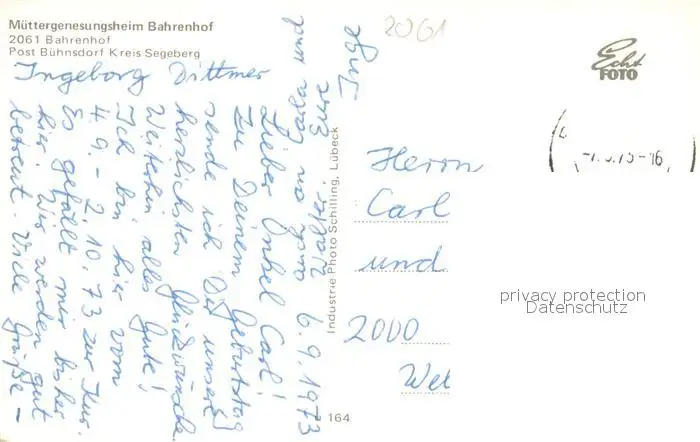 Müttergenesungsheim Bahrenhof
2061 Bahrenhof
Post Bühnsdorf Kreis Segeberg
Ingeborg Dittmer
2061
Echt
FOTO
6.9.1973
Lieber Onkel Carl!
Zu Deinem Geburtstag
sende ich Dir unsere
herzlichsten Glückwünsche.
Weiterhin alles Gute!
Ich bin hier vom
4.9. - 2.10.73 zur Kur.
Es gefällt mir bisher
hier. Wir werden gut
betreut. Viele Grüße -
Eure
Inge
Walter
Industrie-Photo Schilling, Lübeck
164
Herrn
Carl
und
2000
Wet
privacy protection
Datenschutz